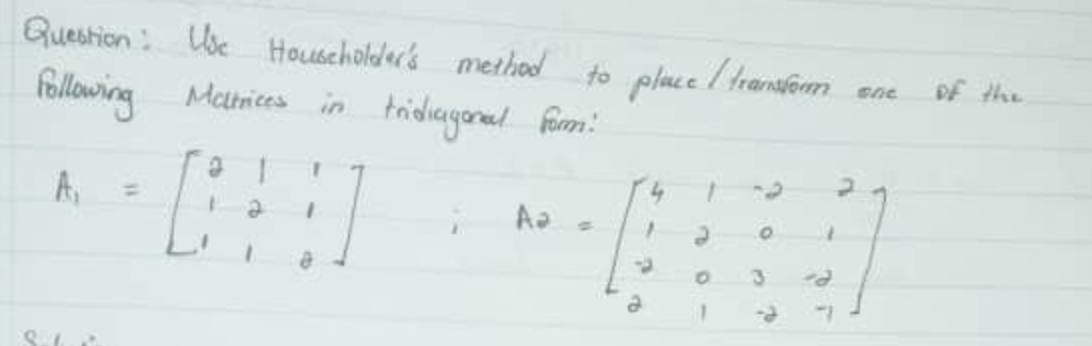 Question: Use Householder's method to place/transform one of the
following Matrices in tridiagonal form:
A₁ = [2 1 1; 1 2 1; 1 1 2] ; A2 = [4 1 -2 2; 1 2 0 1; -2 0 3 -2; 2 1 -2 -1]